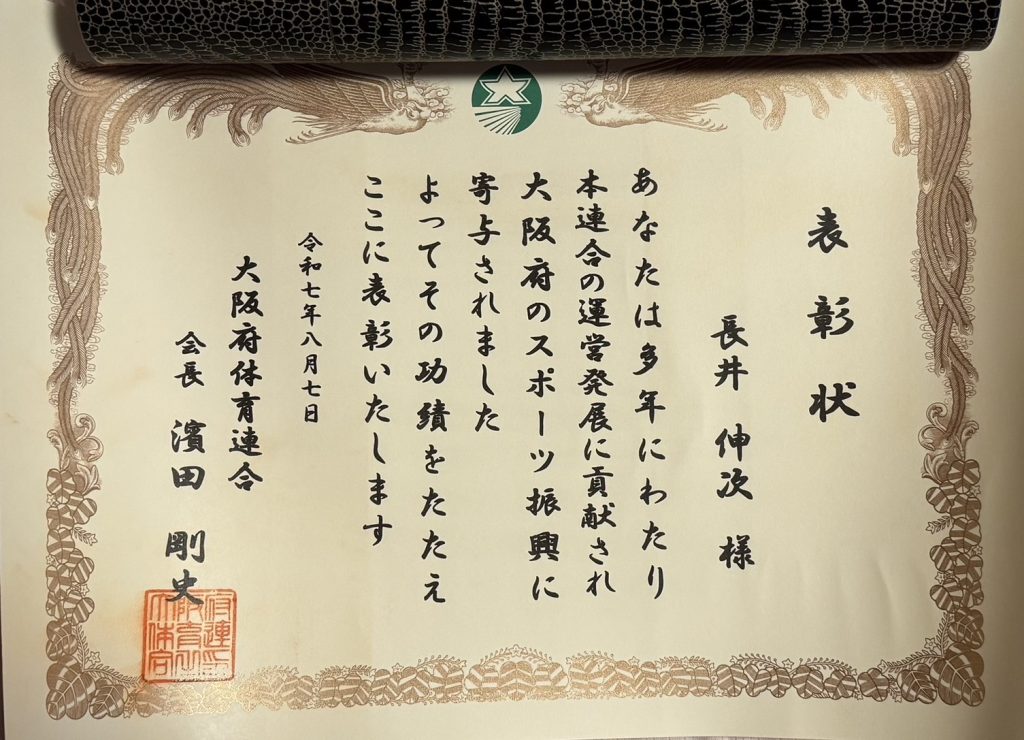 表彰状
長井 伸次 様
あなたは多年にわたり
本連合の運営発展に貢献され
大阪府のスポーツ振興に
寄与されました
よってその功績をたたえ
ここに表彰いたします
令和七年八月七日
大阪府体育連合
会長 濱田 剛史